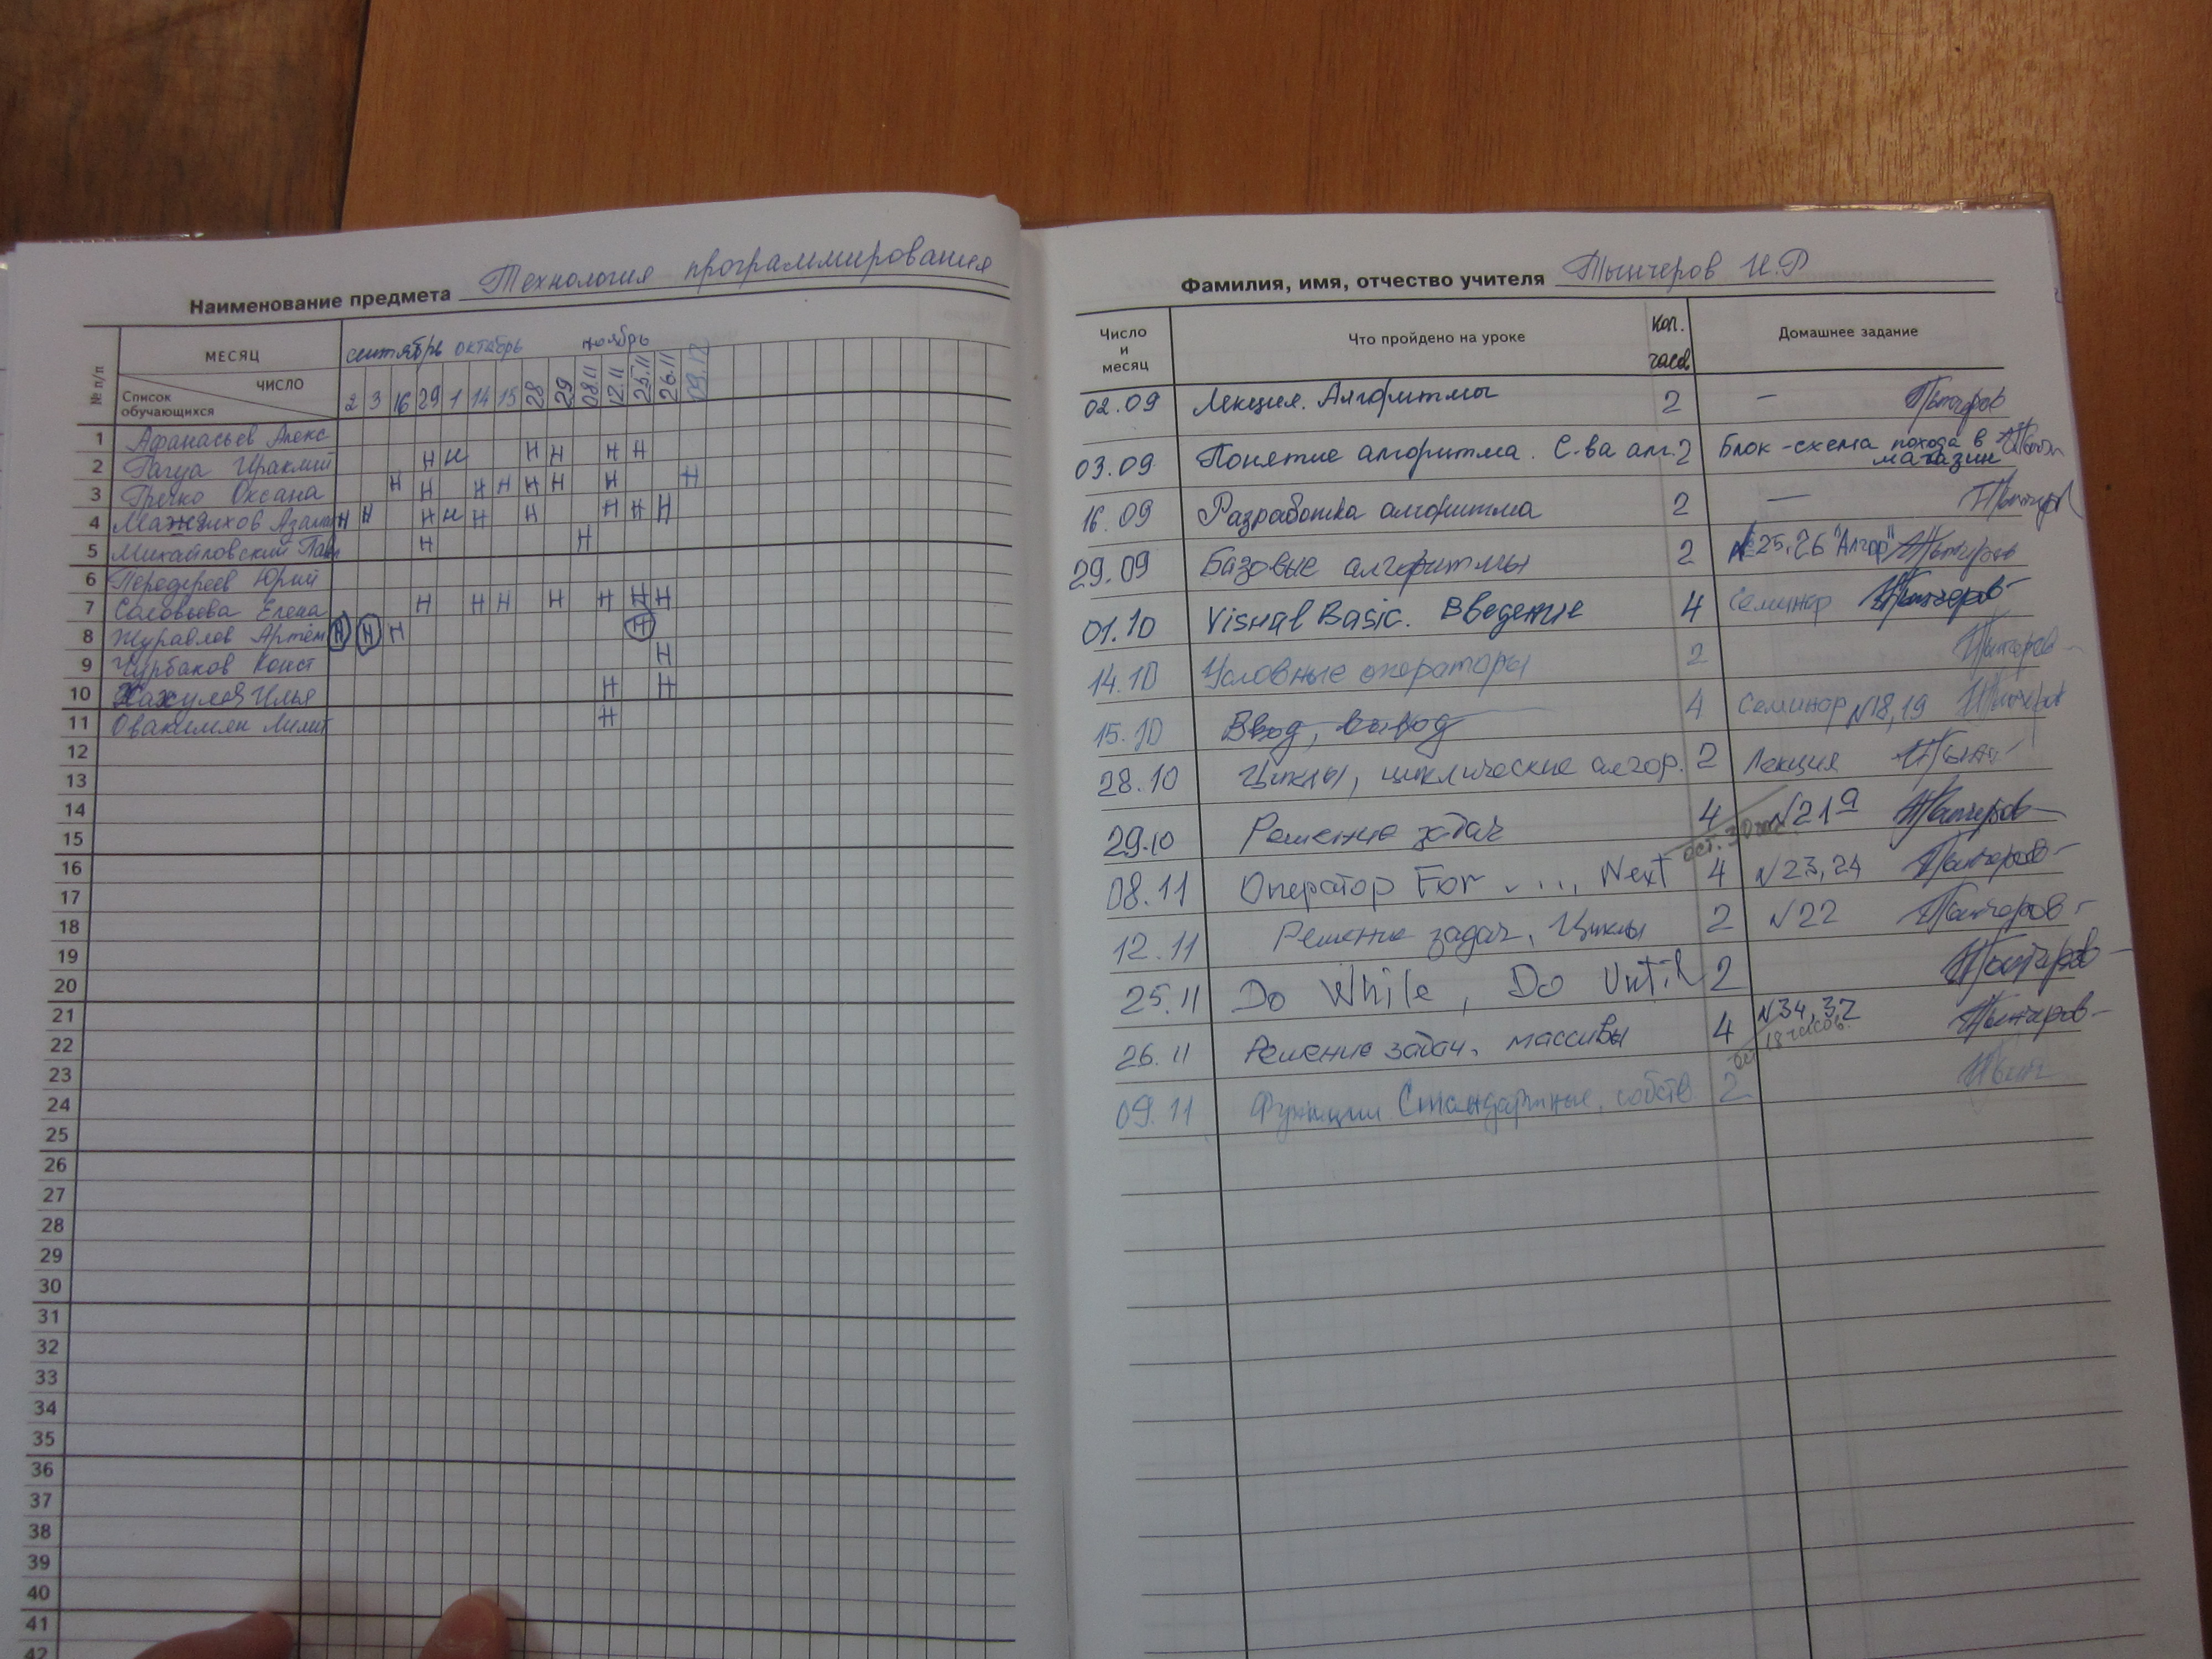 Наименование предмета Технология программирования
№ п/п
МЕСЯЦ сентябрь октябрь ноябрь
ЧИСЛО
Список обучающихся
2 3 16 29 1 14 15 28 29 08.11 12.11 25.11 26.11 09.12
1 Афанасьев Алекс
2 Гагуа Ираклий Н Н Н Н Н Н
3 Гречко Оксана Н Н Н Н Н Н Н Н
4 Н Н Н Н Н Н Н Н Н
5 Михайловский Н Н
6 Передереев Юрий
7 Соловьева Елена Н Н Н Н Н Н Н
8 Журавлов Артём Н Н Н Н
9 Чурбаков Конст Н
10 Илья Н Н
11 Овакимян Лилит Н
12
13
14
15
16
17
18
19
20
21
22
23
24
25
26
27
28
29
30
31
32
33
34
35
36
37
38
39
40
41
42
Фамилия, имя, отчество учителя Тынчеров И.Р
Число и месяц Что пройдено на уроке Кол. часов Домашнее задание
02.09 Лекция. Алгоритмы 2 — Тынчеров
03.09 Понятие алгоритма. С-ва алг. 2 Блок-схема похода в магазин
16.09 Разработка алгоритма 2 — Тынчеров
29.09 Базовые алгоритмы 2 №25,26 "Алгор" Тынчеров
01.10 Visual Basic. Введение 4 Семинар Тынчеров
14.10 Условные операторы 2 Тынчеров
15.10 Ввод, вывод 4 Семинар №18,19 Тынчеров
28.10 Циклы, циклические алгор. 2 Лекция
29.10 Решение задач 4 №21а Тынчеров
ост. 30
08.11 Оператор For ...., Next 4 №23,24 Тынчеров
12.11 Решение задач, Циклы 2 №22 Тынчеров
25.11 Do While, Do Until 2 Тынчеров
26.11 Решение задач. массивы 4 №34,37 Тынчеров
ост 18 часов.
09.11 Функции. Стандартные, собств 2 Тынч